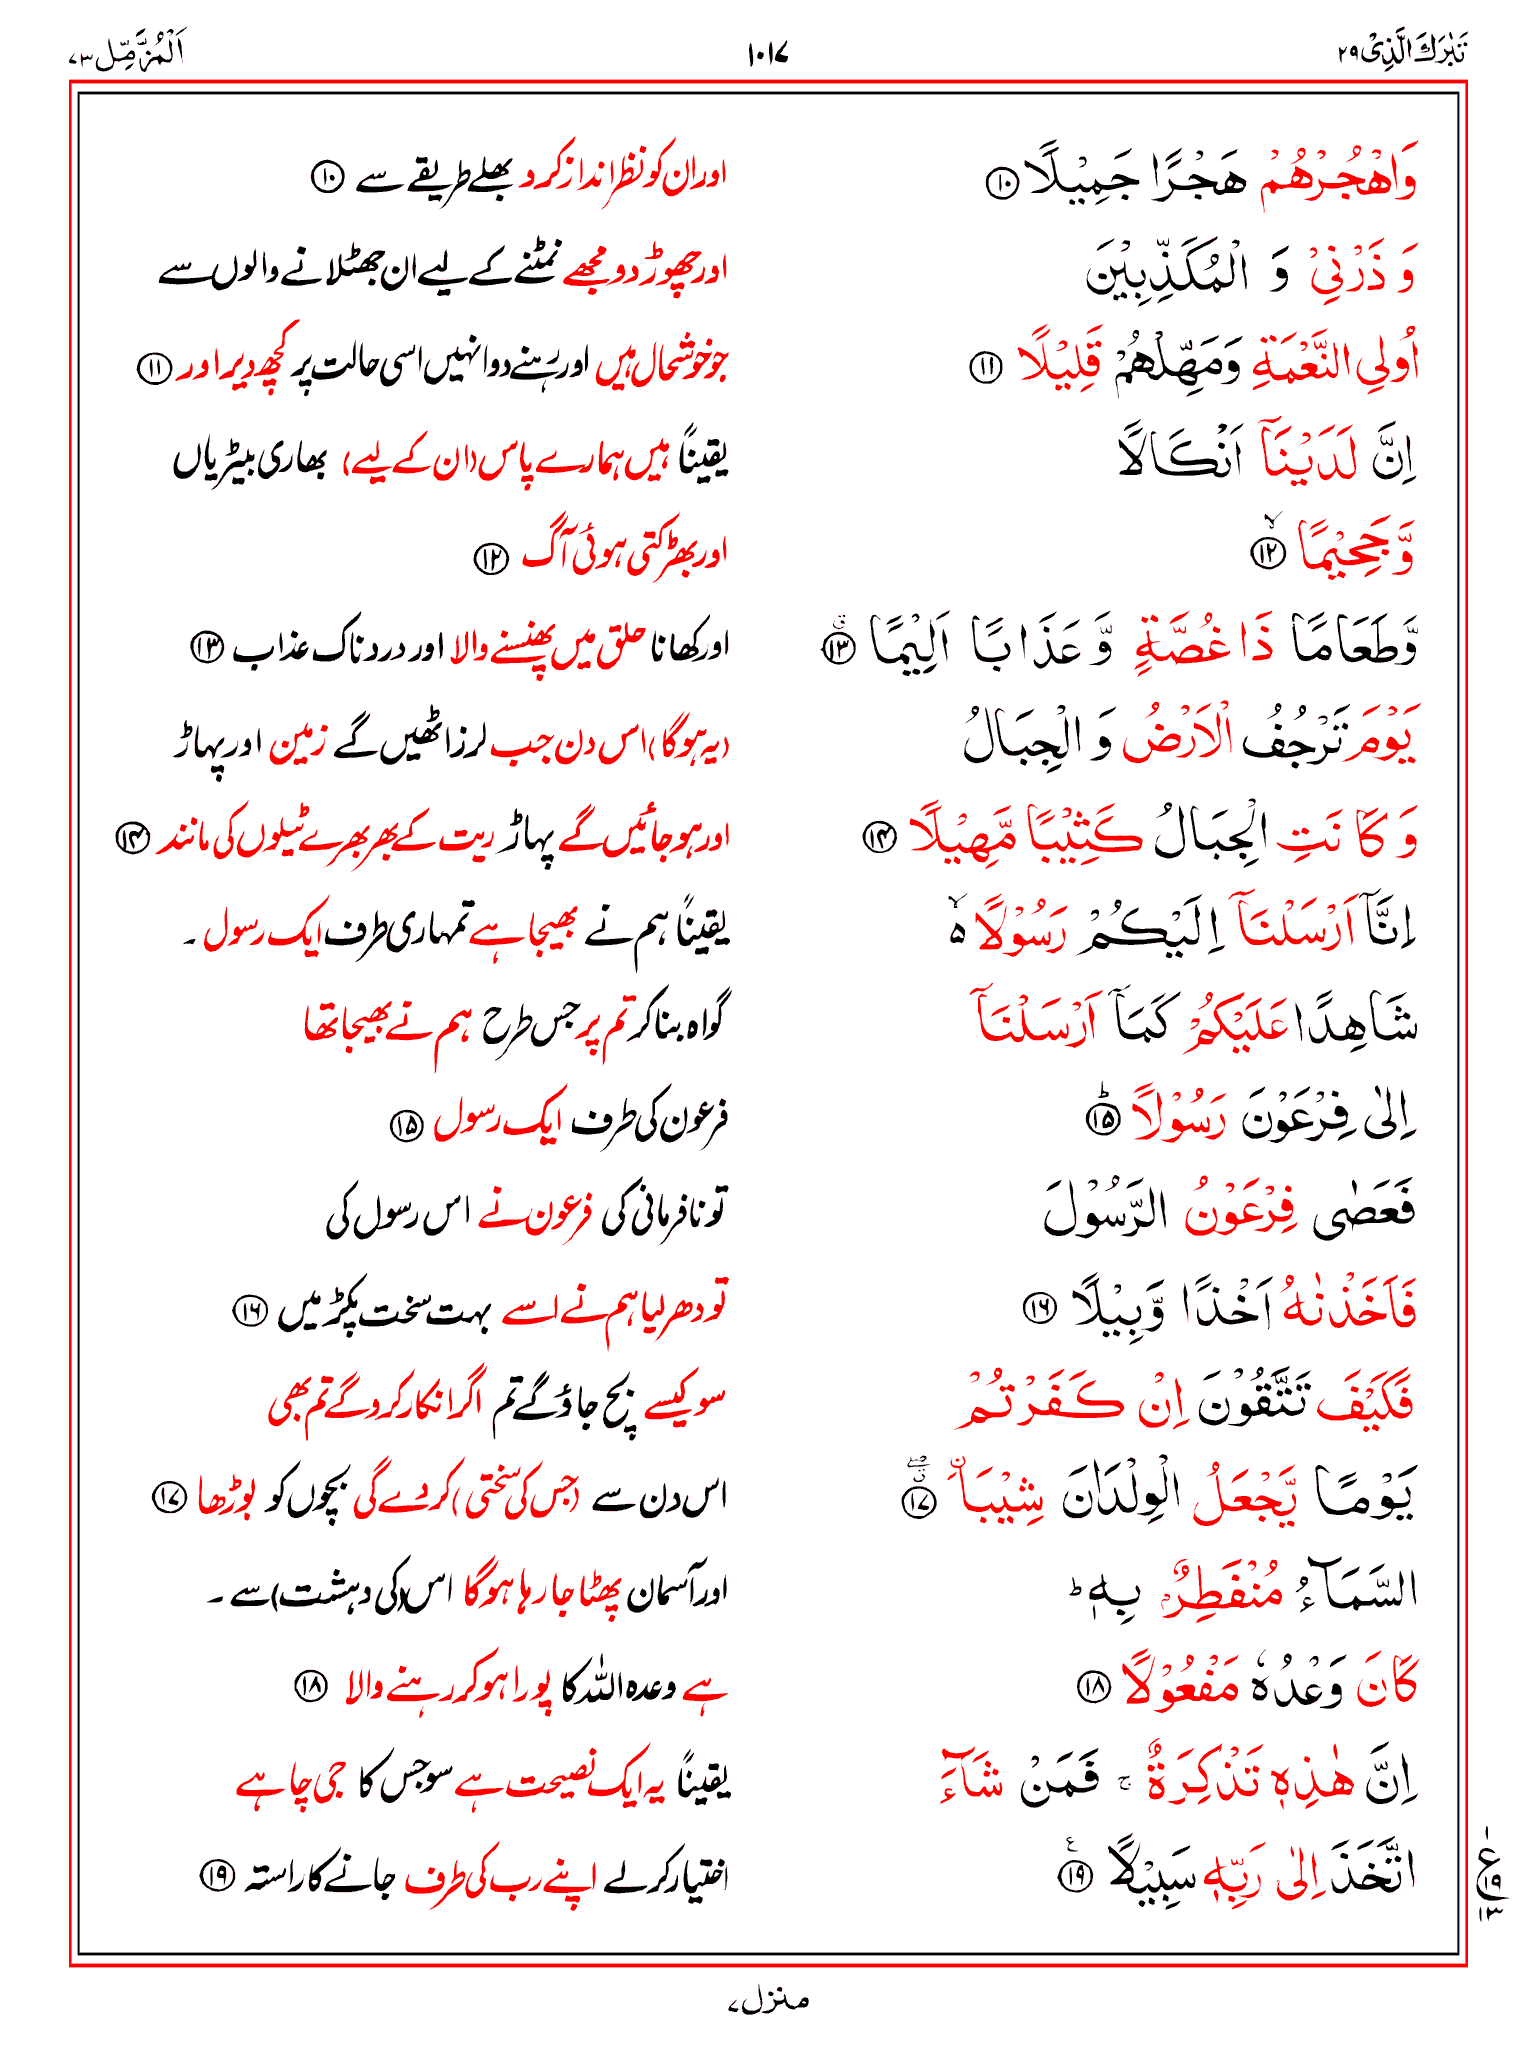 تَبٰرَكَ الَّذِیْ ۲۹ ۱۰۱۷ اَلْمُزَّمِّل ۷۳
وَاهْجُرْهُمْ هَجْرًا جَمِیْلًا ۱۰ اور ان کو نظر انداز کر دو بھلے طریقے سے ۱۰
وَ ذَرْنِیْ وَ الْمُكَذِّبِیْنَ اور چھوڑ دو مجھے نمٹنے کے لیے ان جھٹلانے والوں سے
اُولِی النَّعْمَةِ وَمَهِّلْهُمْ قَلِیْلًا ۱۱ جو خوشحال ہیں اور رہنے دو انہیں اسی حالت پر کچھ دیر اور ۱۱
اِنَّ لَدَیْنَاۤ اَنْكَالًا یقیناً ہیں ہمارے پاس (ان کے لیے) بھاری بیڑیاں
وَّ جَحِیْمًا ۙ۱۲ اور بھڑکتی ہوئی آگ ۱۲
وَّ طَعَامًا ذَا غُصَّةٍ وَّ عَذَابًا اَلِیْمًا ۱۳ اور کھانا حلق میں پھنسنے والا اور دردناک عذاب ۱۳
یَوْمَ تَرْجُفُ الْاَرْضُ وَ الْجِبَالُ (یہ ہوگا) اس دن جب لرز اٹھیں گے زمین اور پہاڑ
وَ كَانَتِ الْجِبَالُ كَثِیْبًا مَّهِیْلًا ۱۴ اور ہو جائیں گے پہاڑ ریت کے بھر بھرے ٹیلوں کی مانند ۱۴
اِنَّاۤ اَرْسَلْنَاۤ اِلَیْكُمْ رَسُوْلًا ۙ۵ یقیناً ہم نے بھیجا ہے تمہاری طرف ایک رسول ۔
شَاهِدًا عَلَیْكُمْ كَمَاۤ اَرْسَلْنَاۤ گواہ بنا کر تم پر جس طرح ہم نے بھیجا تھا
اِلٰی فِرْعَوْنَ رَسُوْلًا ؕ۱۵ فرعون کی طرف ایک رسول ۱۵
فَعَصٰی فِرْعَوْنُ الرَّسُوْلَ تو نافرمانی کی فرعون نے اس رسول کی
فَاَخَذْنٰهُ اَخْذًا وَّبِیْلًا ۱۶ تو دھر لیا ہم نے اسے بہت سخت پکڑ میں ۱۶
فَكَیْفَ تَتَّقُوْنَ اِنْ كَفَرْتُمْ سو کیسے بچ جاؤ گے تم اگر انکار کرو گے تم بھی
یَوْمًا یَّجْعَلُ الْوِلْدَانَ شِیْبَاۨ ۱۷ اس دن سے (جس کی سختی) کر دے گی بچوں کو بوڑھا ۱۷
السَّمَآءُ مُنْفَطِرٌۢ بِهٖ ؕ اور آسمان پھٹا جا رہا ہوگا اس (کی دہشت) سے ۔
كَانَ وَعْدُهٗ مَفْعُوْلًا ۱۸ ہے وعدہ اللہ کا پورا ہو کر رہنے والا ۱۸
اِنَّ هٰذِهٖ تَذْكِرَةٌ ۚ فَمَنْ شَآءَ یقیناً یہ ایک نصیحت ہے سو جس کا جی چاہے
اتَّخَذَ اِلٰی رَبِّهٖ سَبِیْلًا ۱۹ اختیار کر لے اپنے رب کی طرف جانے کا راستہ ۱۹
۱
ع
۱۹
۱۳
منزل ۷